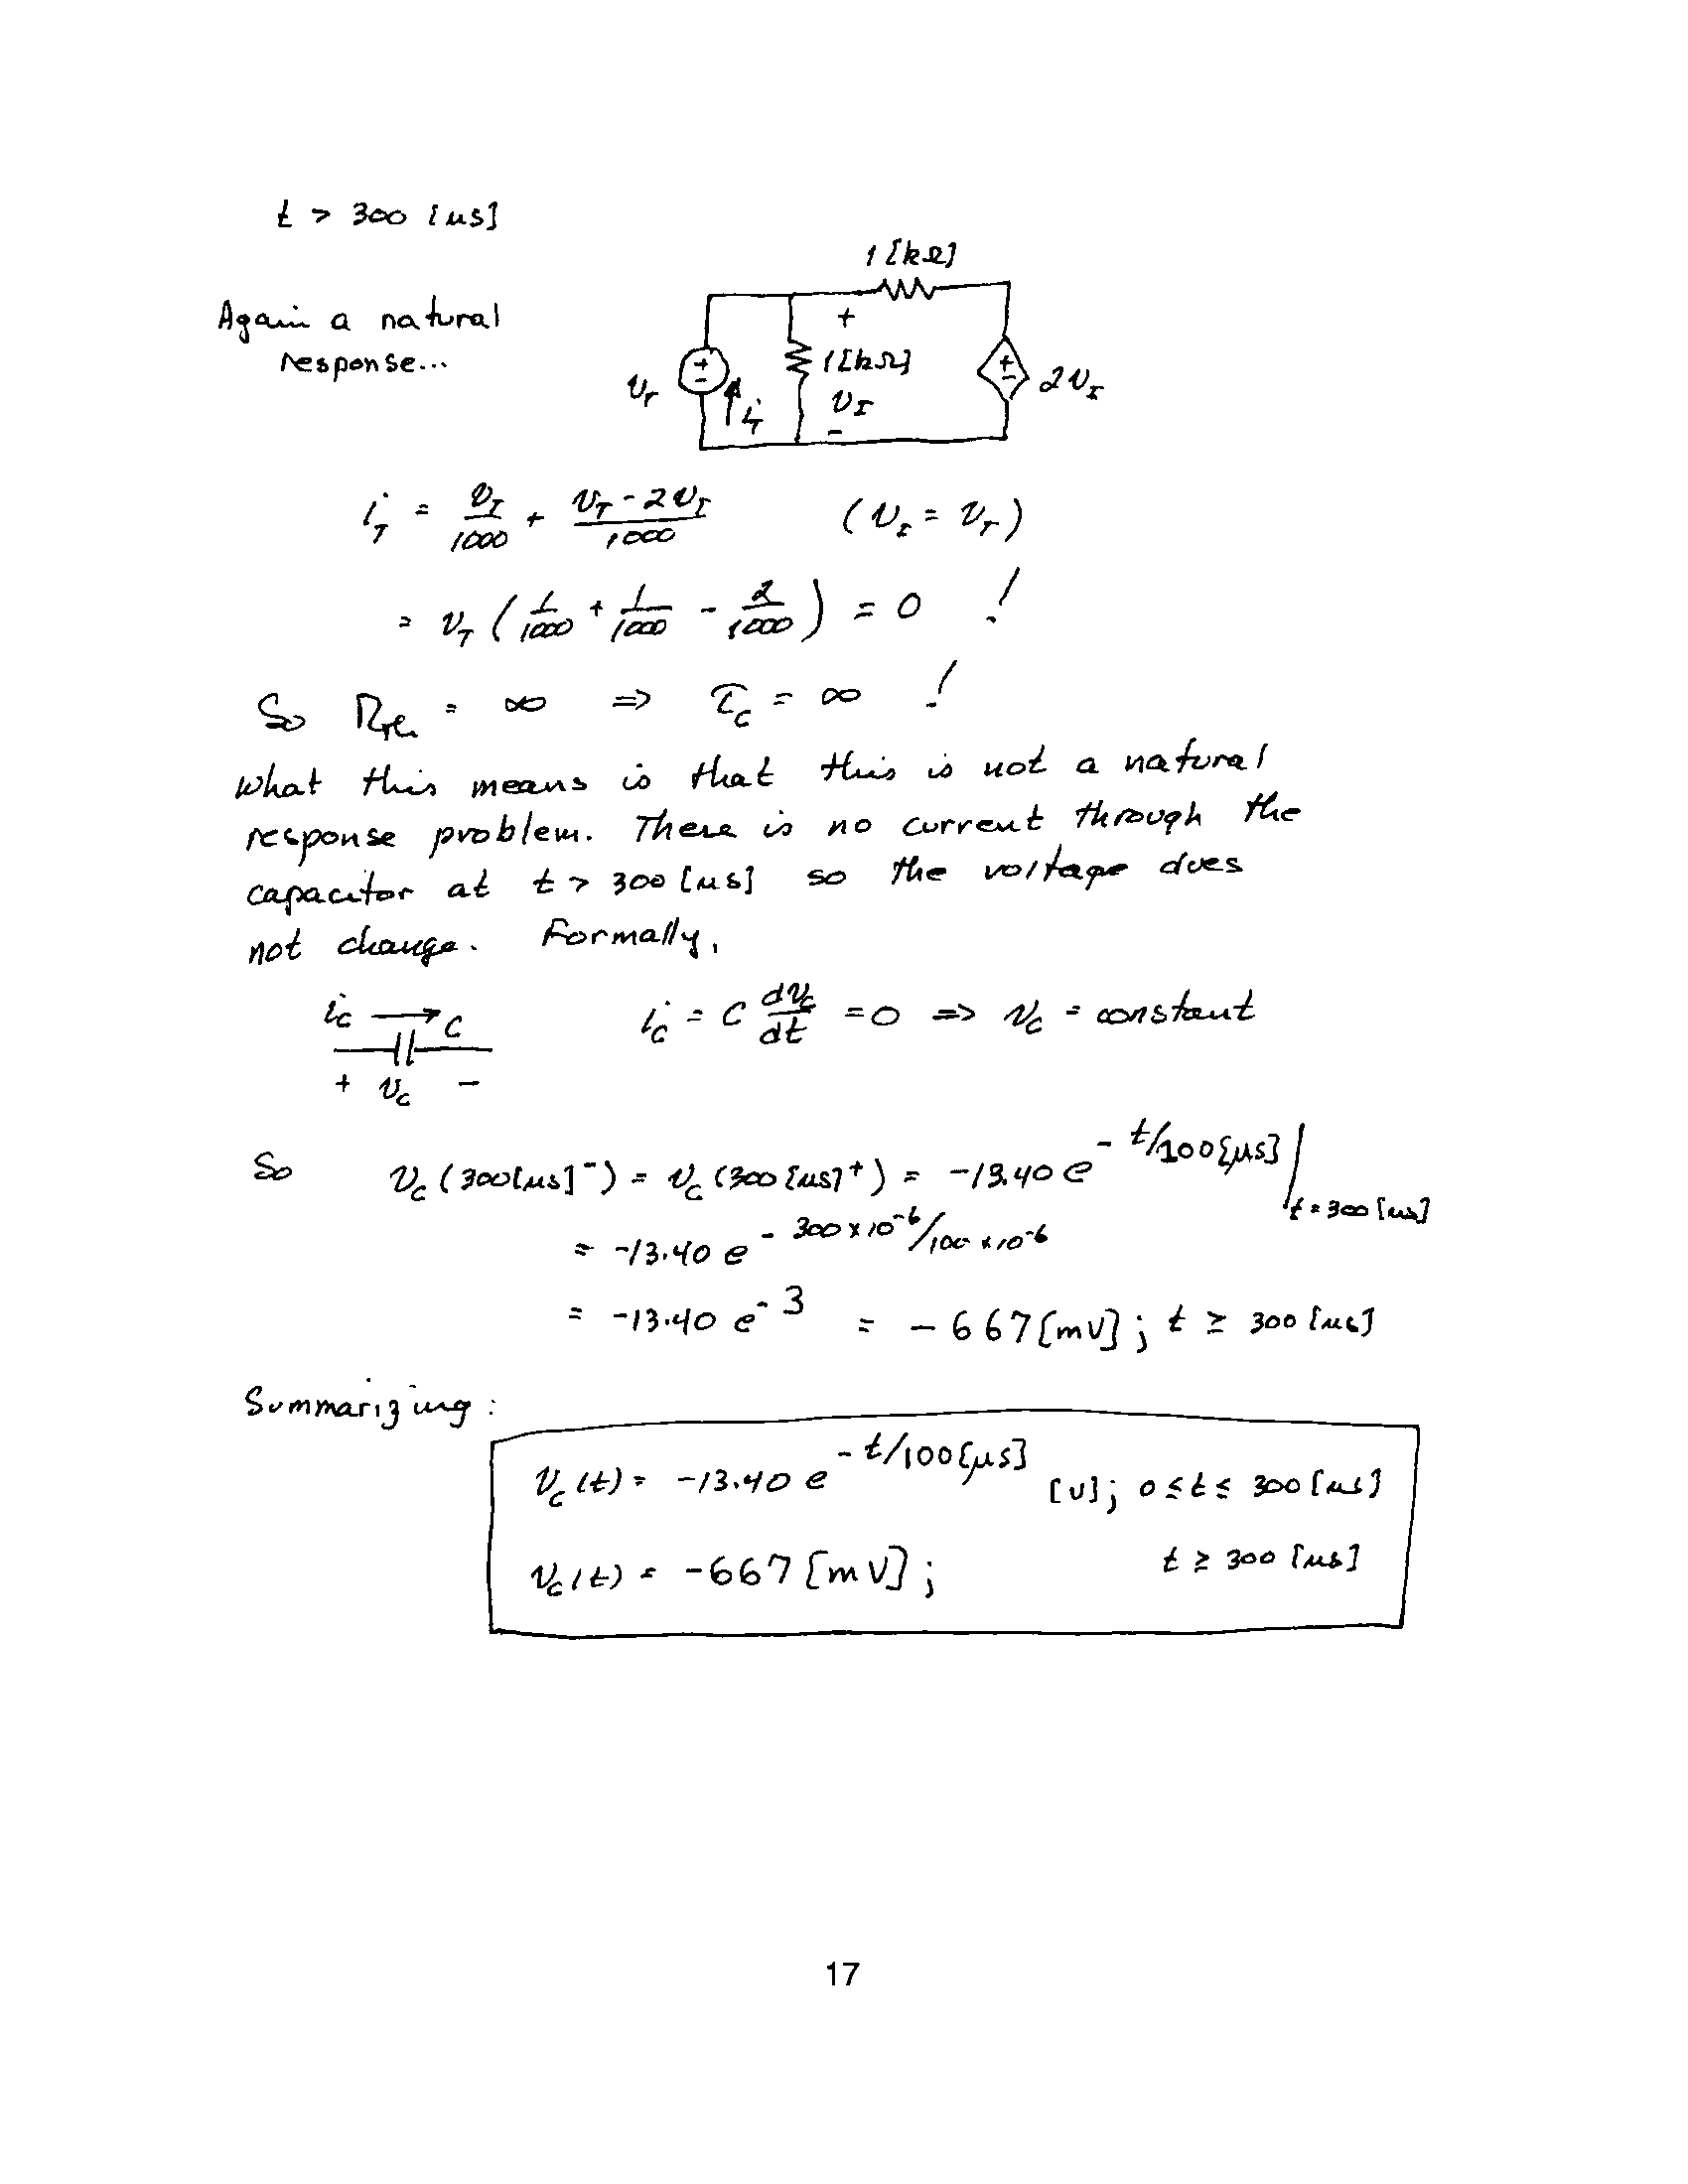 t > 300 [μs]
1 [kΩ]
Again a natural
response...
+
1 [kΩ]
v_T
+
-
i_T
v_I
-
+
-
2v_I
i_T = v_I/1000 + (v_T - 2v_I)/1000 (v_I = v_T)
= v_T (1/1000 + 1/1000 - 2/1000) = 0 !
So R_TH = ∞ => τ_C = ∞ !
What this means is that this is not a natural
response problem. There is no current through the
capacitor at t > 300 [μs] so the voltage does
not change. Formally,
i_C → C
+ v_C -
i_C = C dv_C/dt = 0 => v_C = constant
So v_C (300[μs]⁻) = v_C (300[μs]⁺) = -13.40 e^(-t/100[μs]) |_(t = 300[μs])
= -13.40 e^(-300 x 10⁻⁶/100 x 10⁻⁶)
= -13.40 e^(-3) = -667[mV]; t ≥ 300 [μs]
Summarizing:
v_C(t) = -13.40 e^(-t/100[μs]) [V]; 0 ≤ t ≤ 300 [μs]
v_C(t) = -667 [mV]; t ≥ 300 [μs]
17